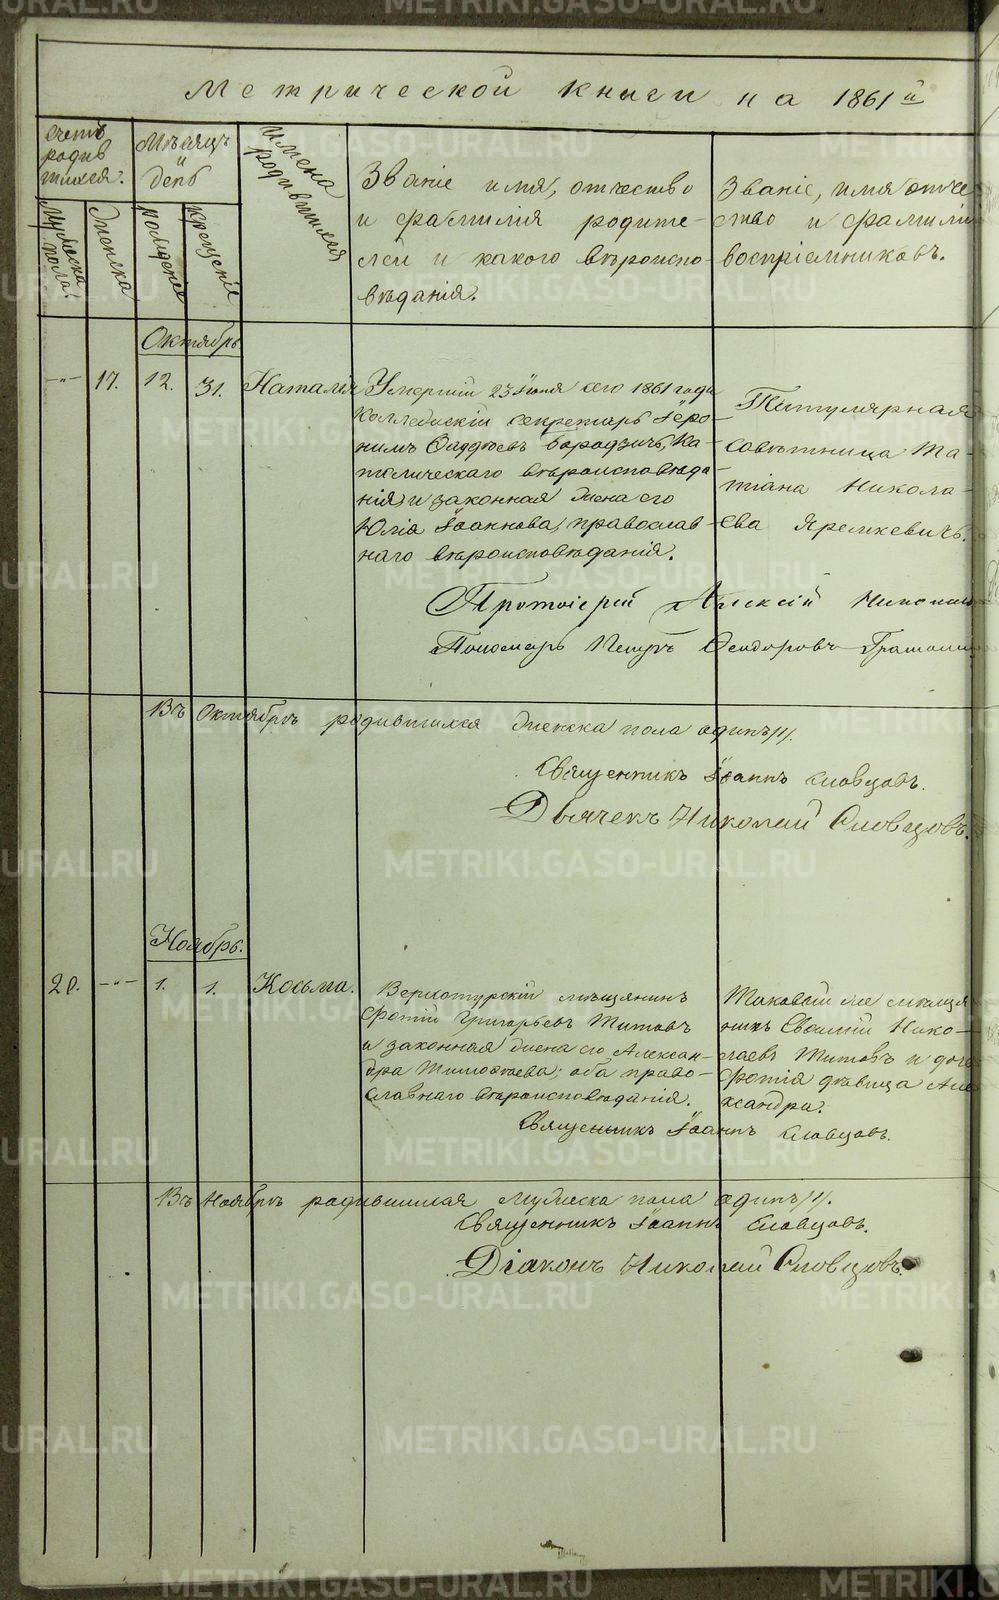 Метрической книги на 1861й
Счетъ
родив
шихся.
Мужеска
пола.
Женска
Мѣсяцъ
и
день
рожденіе
крещеніе
Имена
родившихся
Званіе имя, отчество
и фамилія родите-
лей и какого вѣроиспо-
вѣданія.
Званіе, имя отче-
ство и фамилія
воспріемниковъ.
Октябрь.
-"- 17. 12. 31. Наталія
Умершій 23 Іюня сего 1861 года
Коллежскій Секретарь Іеро-
нимъ Фаддѣевъ Бородзичъ, Ка-
толическаго вѣроисповѣда-
нія, и законная жена его
Юлія Іоаннова, православ-
наго вѣроисповѣданія.
Титулярная
Совѣтница Та-
тіана Никола-
ева Яремкевичъ.
Протоіерей Алексій
Пономарь Петръ Ѳеодоровъ
Въ Октябрѣ родившихся женска пола одинъ /1/.
Священникъ Іоаннъ Словцовъ.
Дьячекъ Николай Словцовъ.
Ноябрь.
20. -"- 1. 1. Косьма.
Верхотурскій мѣщянинъ
Фотій Григорьевъ Титовъ
и законная жена его Алексан-
дра Тимофѣева; оба право-
славнаго вѣроисповѣданія.
Таковый же мѣщя
нинъ Евѳимій Нико-
лаевъ Титовъ и дочь
Фотія дѣвица Але
ксандра.
Священникъ Іоаннъ Словцовъ.
Въ Ноябрѣ родившихся мужеска пола одинъ /1/.
Священникъ Іоаннъ Словцовъ.
Діаконъ Николай Словцовъ.
METRIKI.GASO-URAL.RU